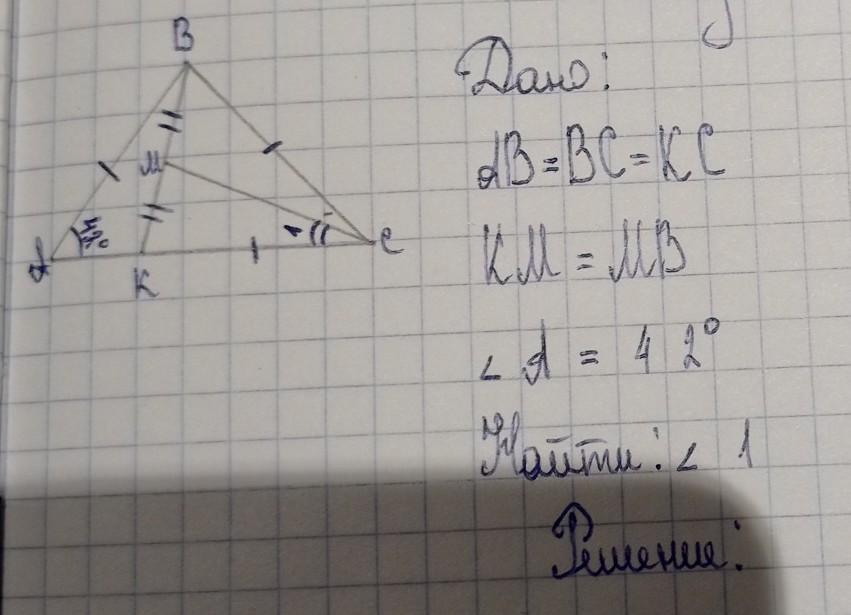 B
M
42°
1
A
K
C
Дано:
AB = BC = KC
KM = MB
∠ A = 42°
Найти: ∠ 1
Решение: